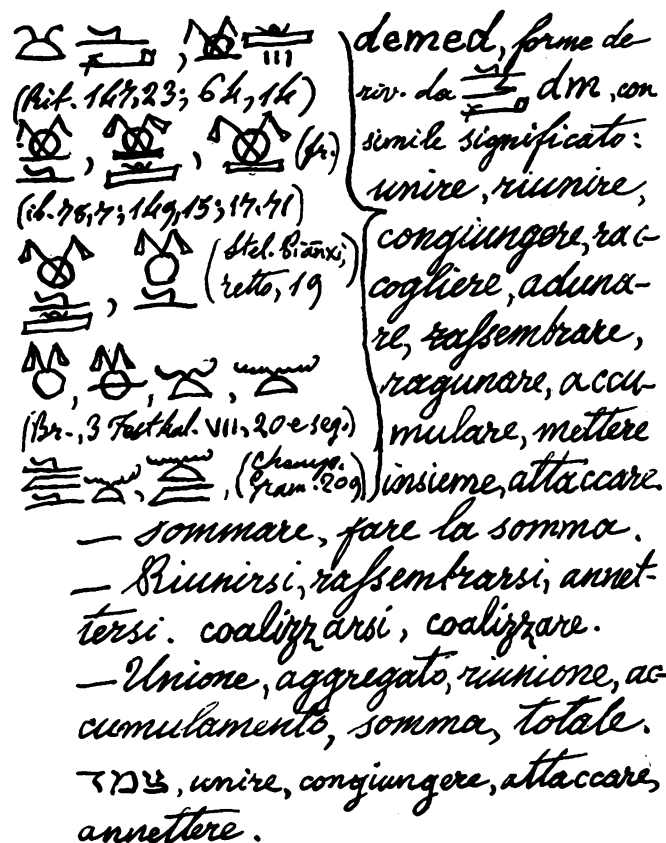 (Rit. 147,23; 64,14)
(fr.)
(ib. 78,7; 149,15; 17.71)
(Stel. Piānxi,
retto, 19)
(Br., 3 Festkal. VII, 20 e seg.)
(Champ.
Gram. 209)
demed, forme de
riv. da dm, con
simile significato:
unire, riunire,
congiungere, rac-
cogliere, aduna-
re, rassembrare,
ragunare, accu-
mulare, mettere
insieme, attaccare.
— sommare, fare la somma.
— Riunirsi, rassembrarsi, annet-
tersi. coalizzarsi, coalizzare.
— Unione, aggregato, riunione, ac-
cumulamento, somma, totale.
צמד, unire, congiungere, attaccare,
annettere.